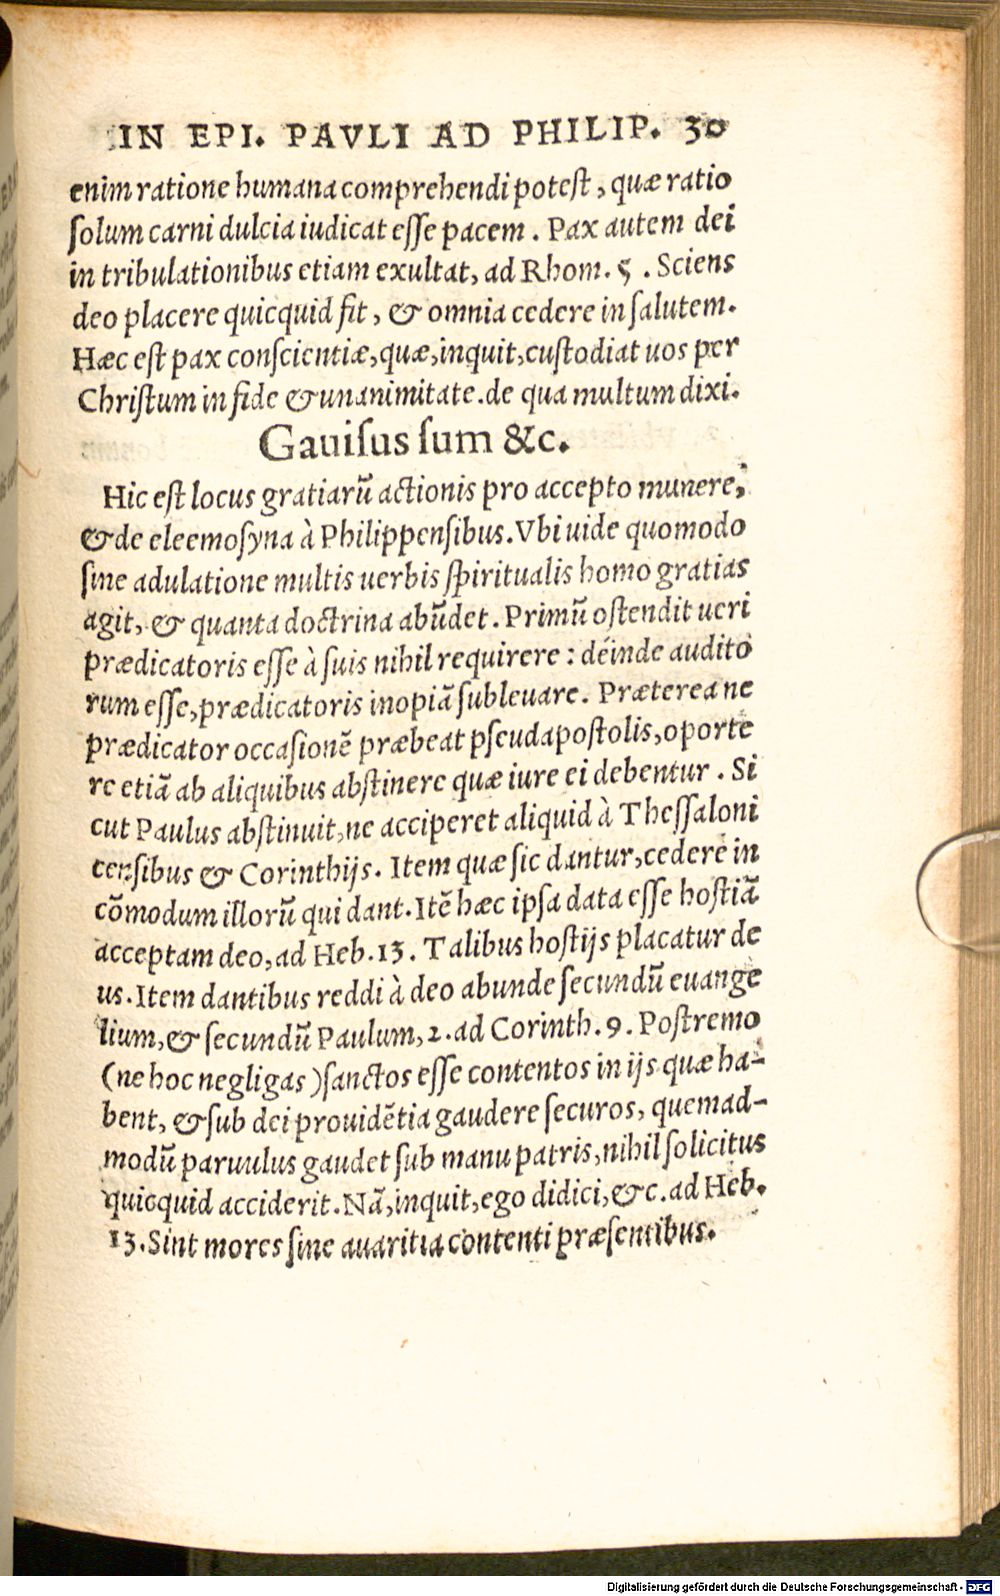 IN EPI. PAVLI AD PHILIP. 30
enim ratione humana comprehendi potest, quæ ratio
solum carni dulcia iudicat esse pacem. Pax autem dei
in tribulationibus etiam exultat, ad Rhom. 5. Sciens
deo placere quicquid fit, & omnia cedere in salutem.
Hæc est pax conscientiæ, quæ, inquit, custodiat uos per
Christum in fide & unanimitate. de qua multum dixi.
Gauisus sum &c.
Hic est locus gratiarũ actionis pro accepto munere,
& de eleemosyna à Philippensibus. Vbi uide quomodo
sine adulatione multis uerbis spiritualis homo gratias
agit, & quanta doctrina abũdet. Primũ ostendit ueri
prædicatoris esse à suis nihil requirere: deinde audito
rum esse, prædicatoris inopiã subleuare. Præterea ne
prædicator occasionẽ præbeat pseudapostolis, oporte
re etiã ab aliquibus abstinere quæ iure ei debentur. Si
cut Paulus abstinuit, ne acciperet aliquid à Thessaloni
censibus & Corinthijs. Item quæ sic dantur, cedere in
cõmodum illorũ qui dant. Itẽ hæc ipsa data esse hostiã
acceptam deo, ad Heb. 13. Talibus hostijs placatur de
us. Item dantibus reddi à deo abunde secundũ euange
lium, & secundũ Paulum, 2. ad Corinth. 9. Postremo
(ne hoc negligas) sanctos esse contentos in ijs quæ ha-
bent, & sub dei prouidẽtia gaudere securos, quemad-
modũ paruulus gaudet sub manu patris, nihil solicitus
quicquid acciderit. Nã, inquit, ego didici, &c. ad Heb.
13. Sint mores sine auaritia contenti præsentibus.
Digitalisierung gefördert durch die Deutsche Forschungsgemeinschaft - DFG